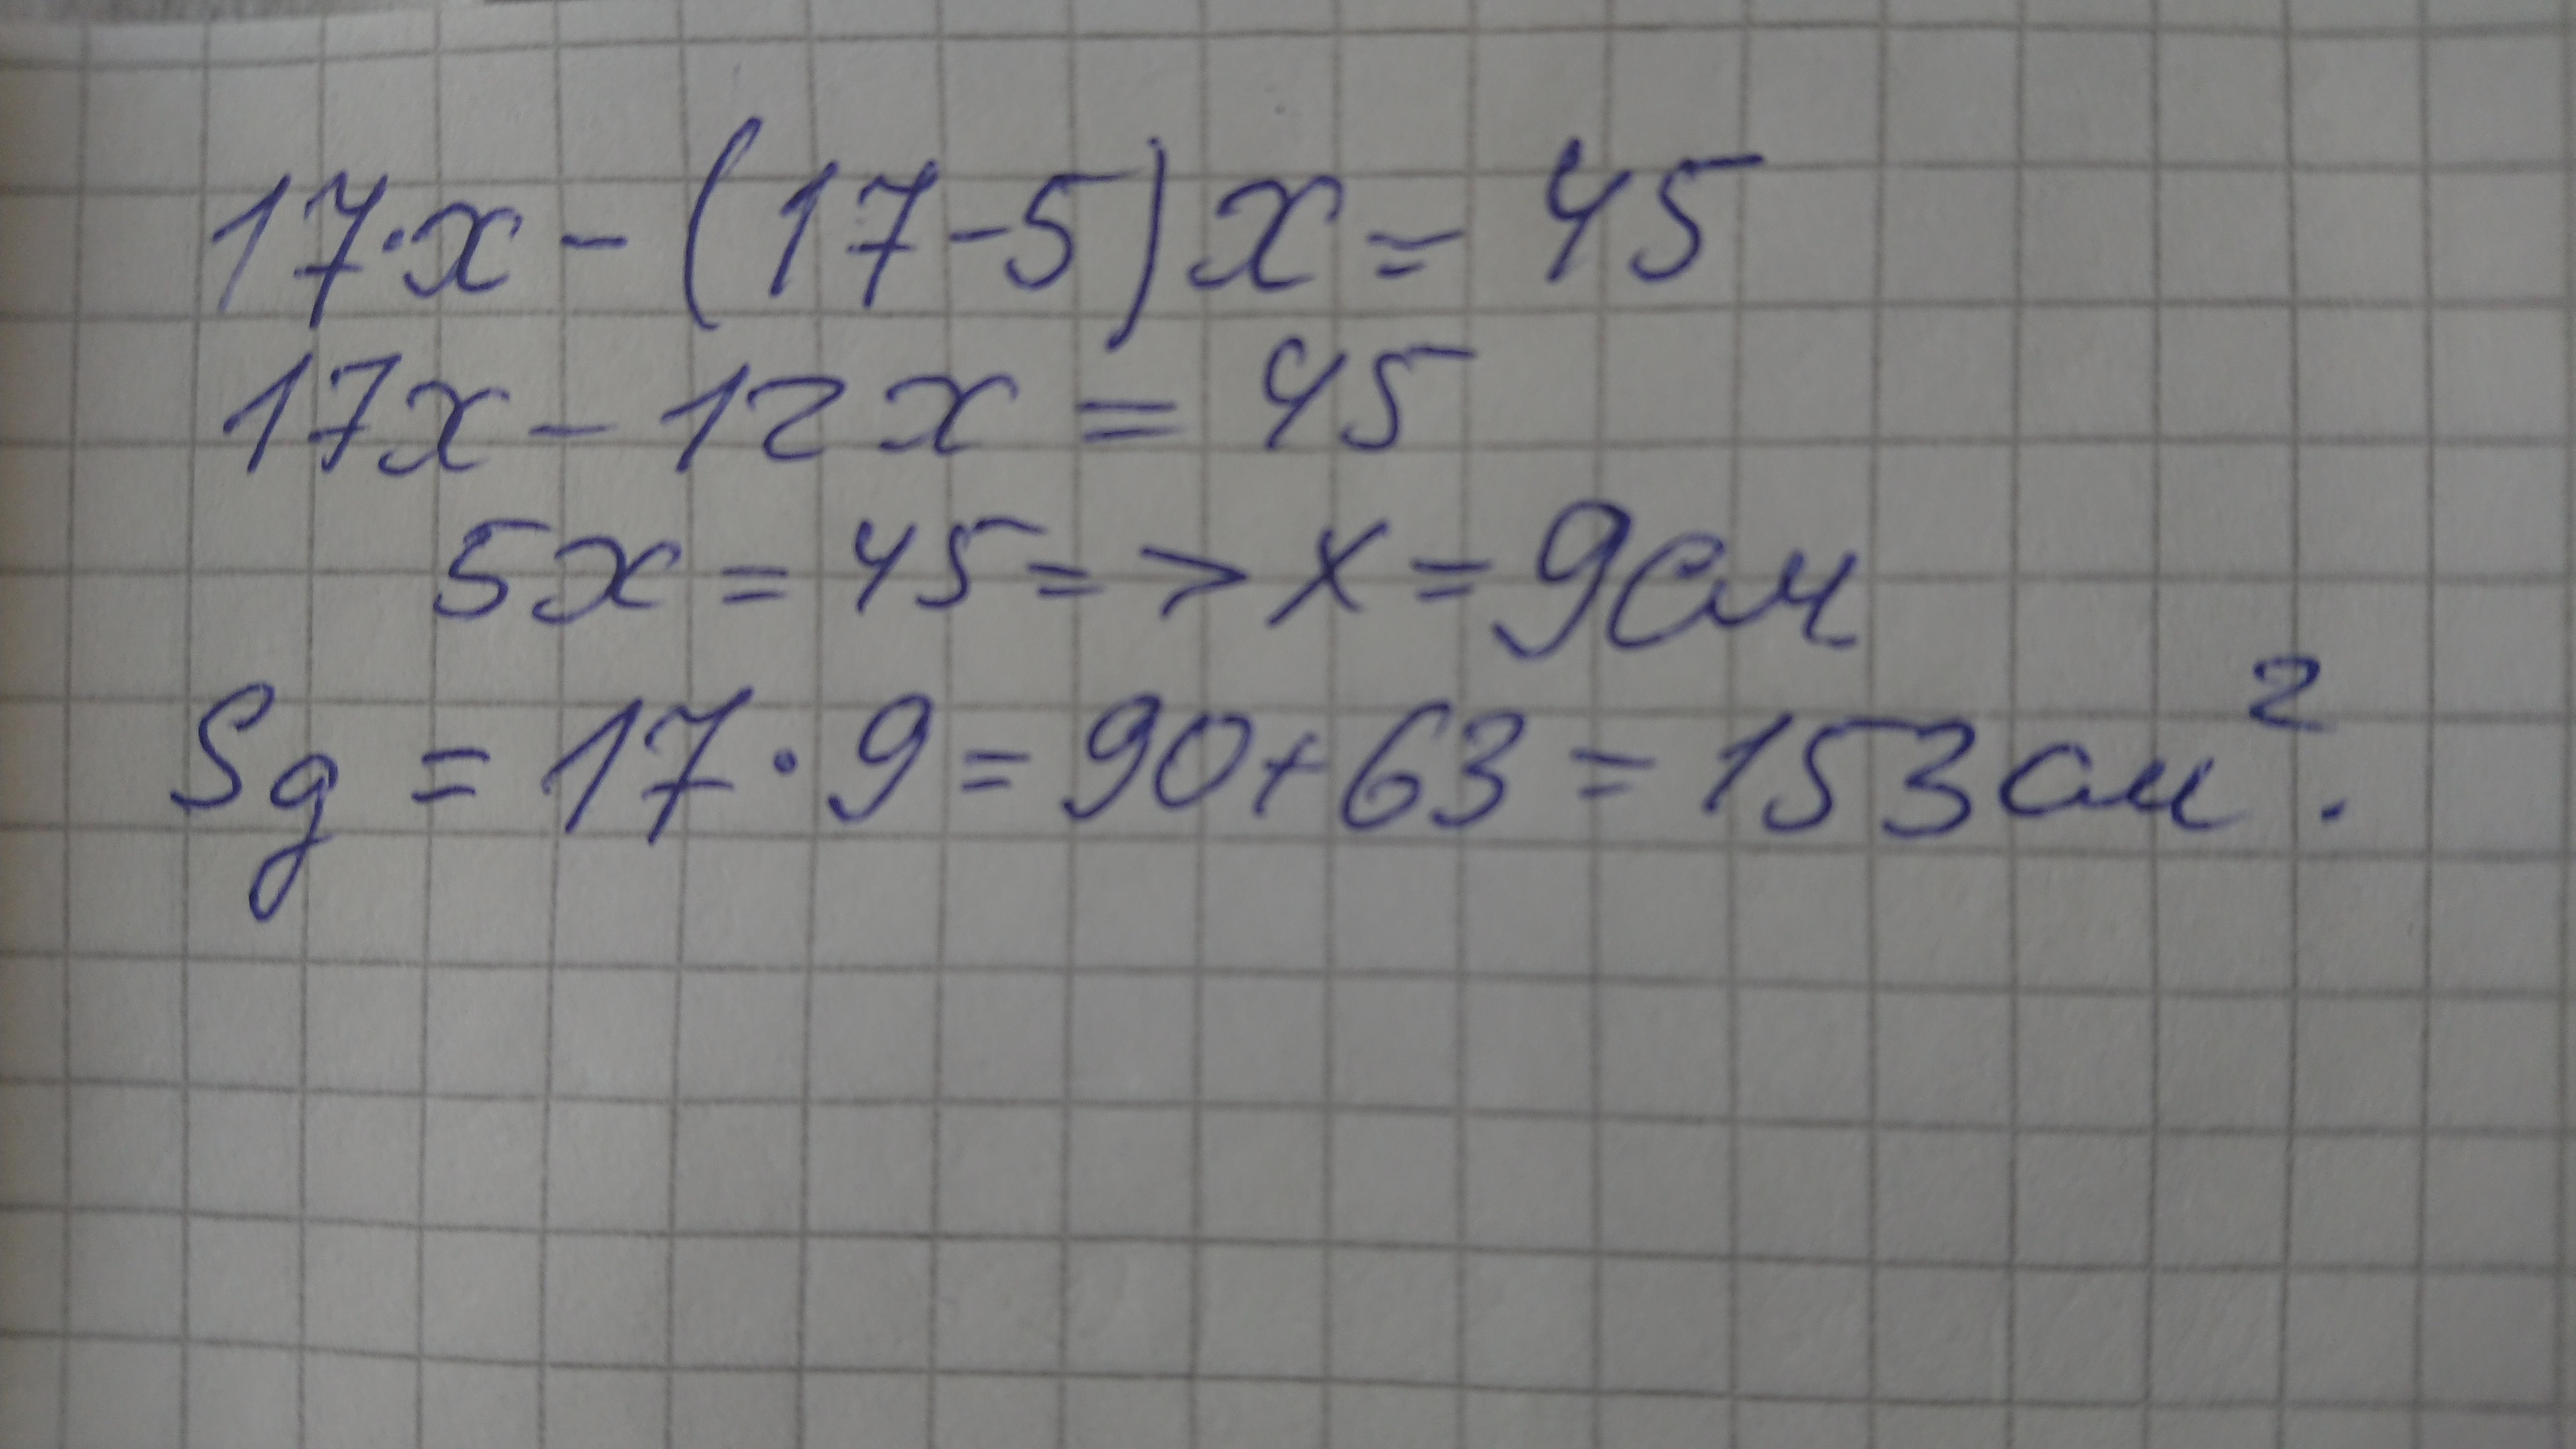 17·x-(17-5)x=45
17x-12x=45
5x=45=>x=9см
Sg=17·9=90+63=153см².